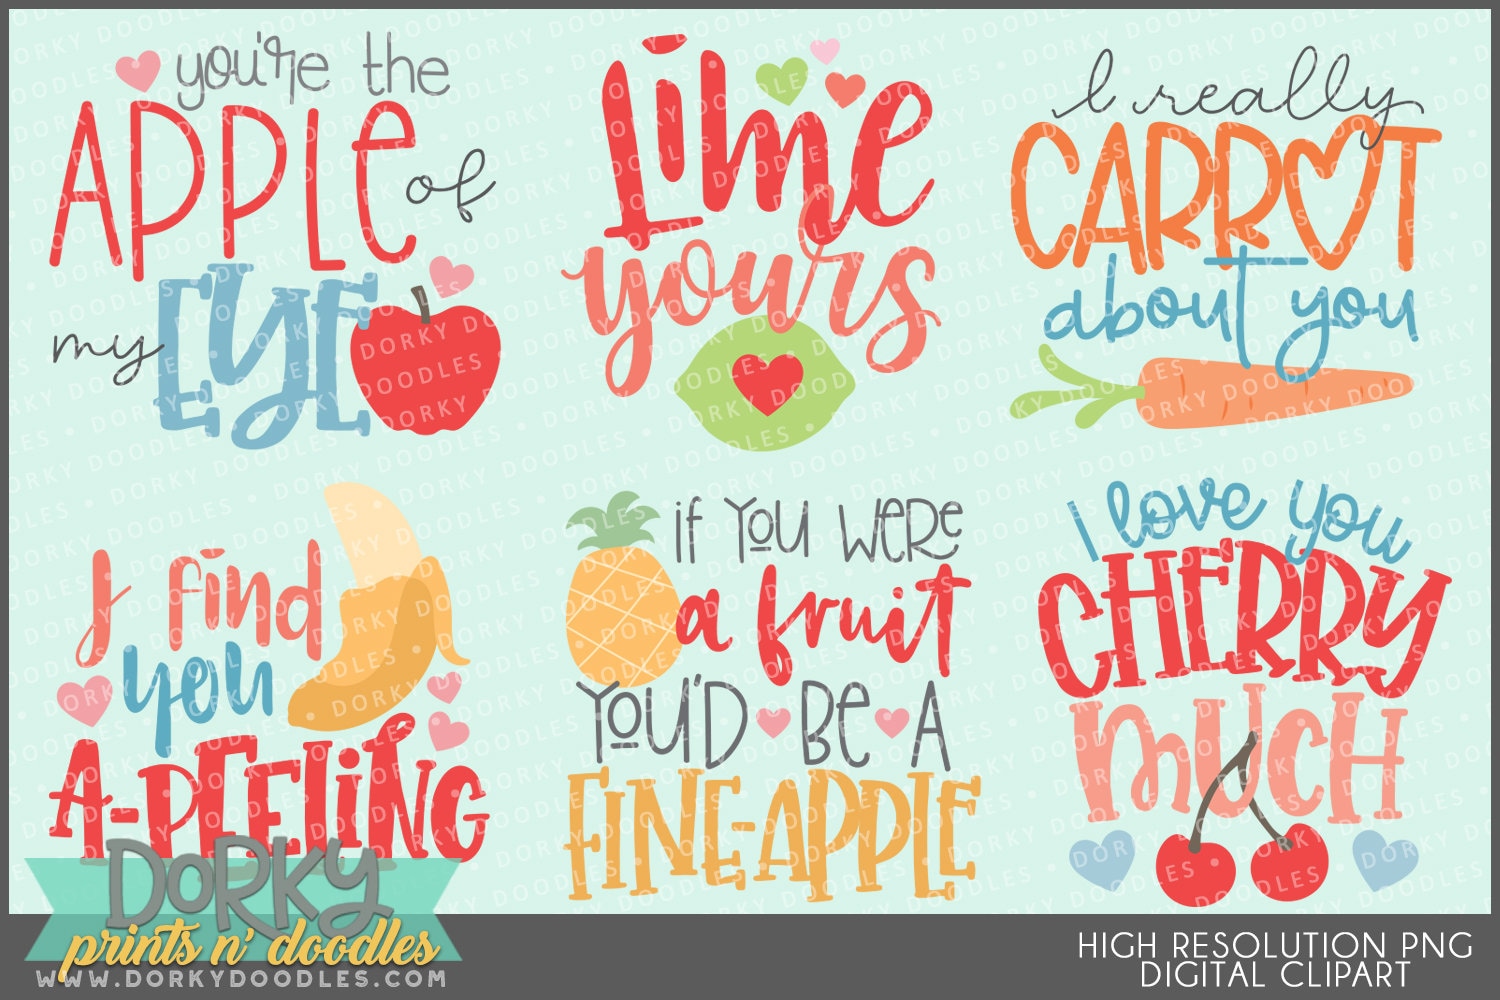 you're the
APPLE of
my EYE
Lime
yours
I really
CARROT
about you
I find
you
A-PEELiNG
if you were
a fruit
YOU'D BE A
FINE-APPLE
I love you
CHERRY
mUCH
DORKY
prints n' doodles
WWW.DORKYDOODLES.COM
HIGH RESOLUTION PNG
DIGITAL CLIPART
DORKY DOODLES